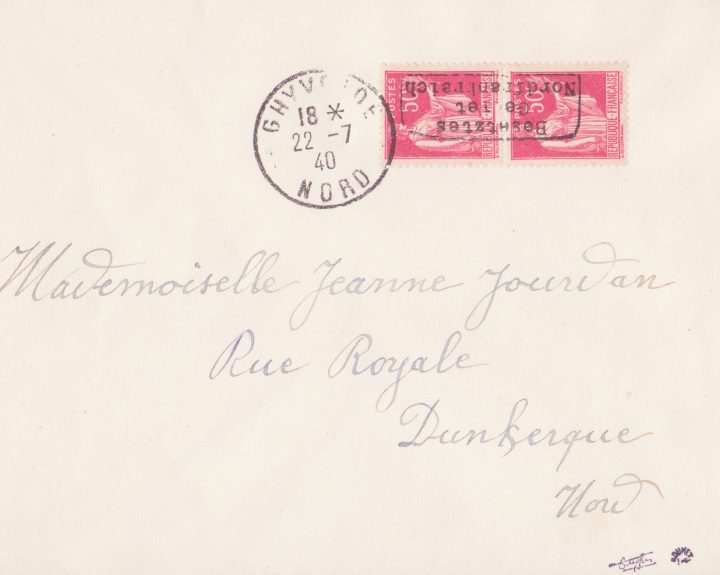 GHYVELDE
18 *
22 -7
40
NORD
POSTES 50 REPUBLIQUE FRANÇAISE
POSTES 50 REPUBLIQUE FRANÇAISE
Besetztes
Gebiet
Nordfrankreich
Mademoiselle Jeanne Jourdan
Rue Royale
Dunkerque
Nord